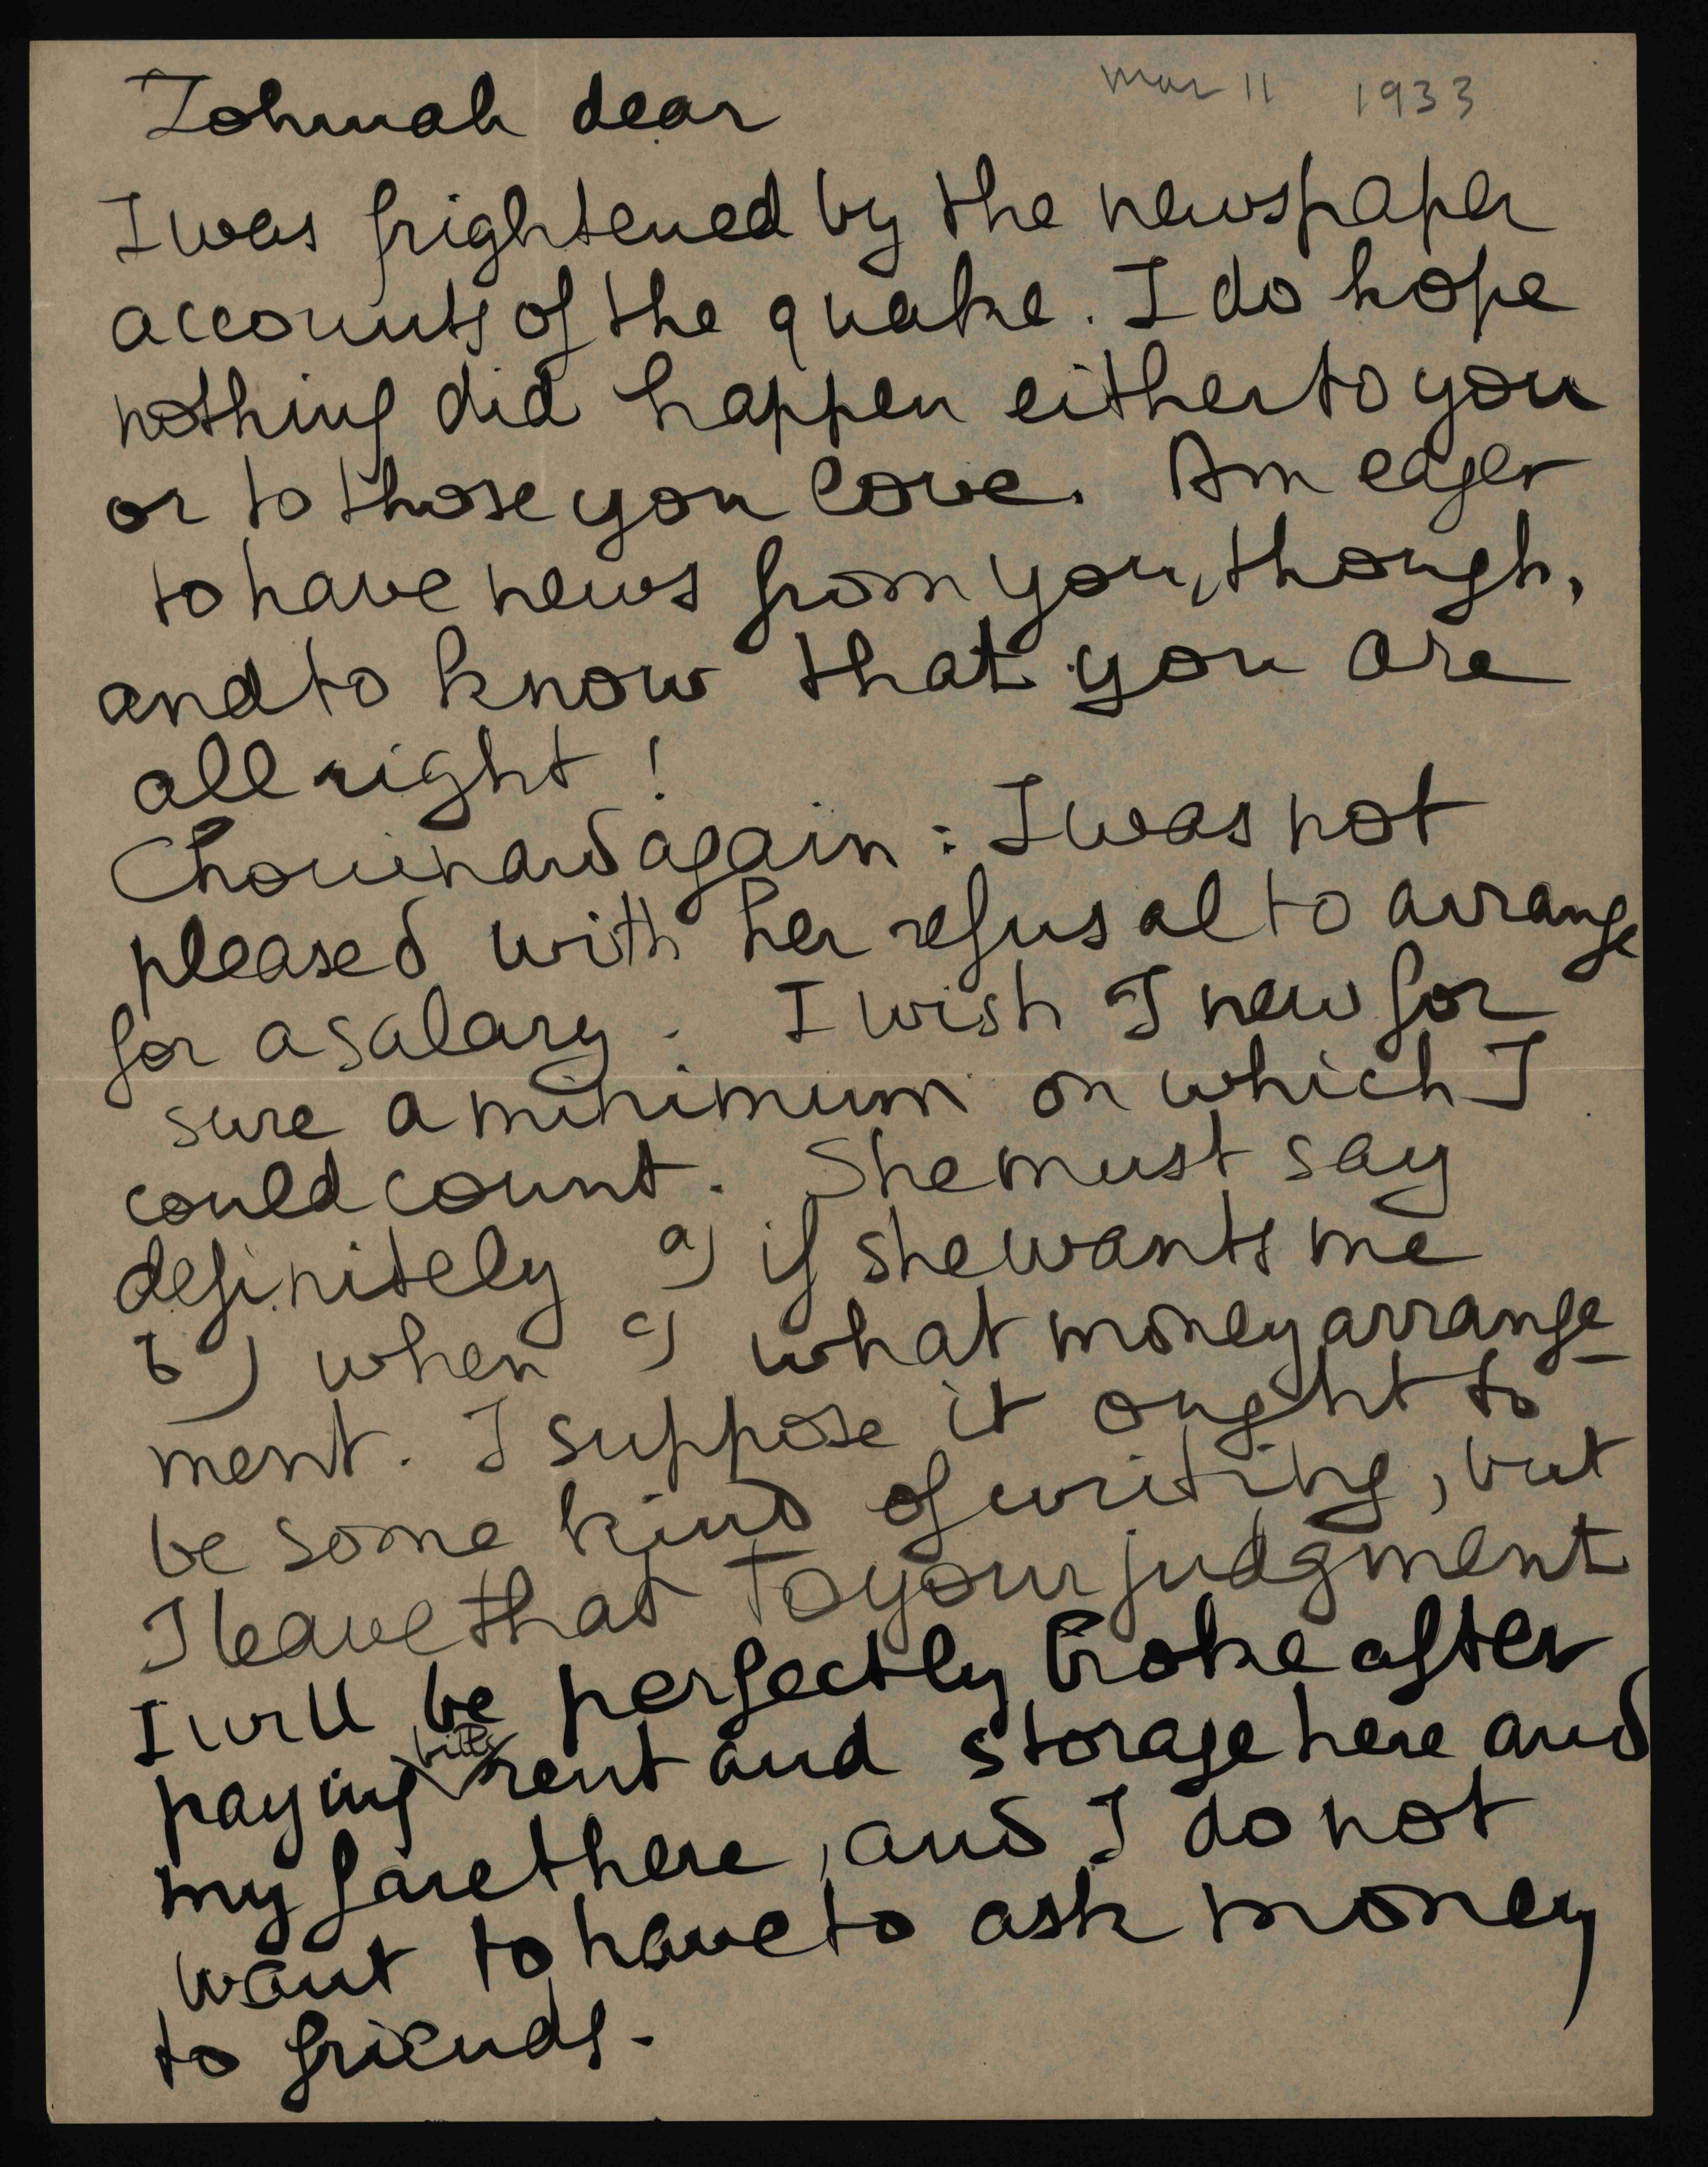 Zohmah dear
mar 11 1933
I was frightened by the newspaper
accounts of the quake. I do hope
nothing did happen either to you
or to those you love. Am eager
to have news from you, though,
and to know that you are
all right !
Chouinard again : I was not
pleased with her refusal to arrange
for a salary. I wish I new for
sure a minimum on which I
could count. She must say
definitely a) if she wants me
b) when c) what money arrange-
ment. I suppose it ought to
be some kind of writing, but
I leave that to your judgment
I will be perfectly broke after
bills
paying rent and storage here and
my fare there, and I do not
want to have to ask money
to friends.